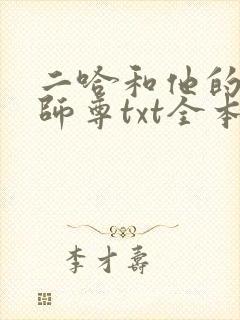 二哈和他的
師尊txt全本
李才壽